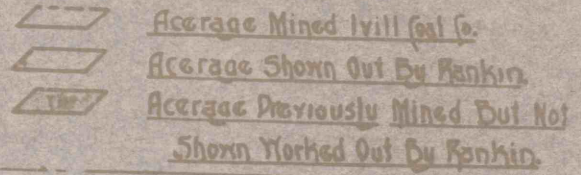 Acerage Mined Ivill Coal Co.
Acerage Shown Out By Rankin
Acerage Previously Mined But Not
Shown Worked Out By Rankin.